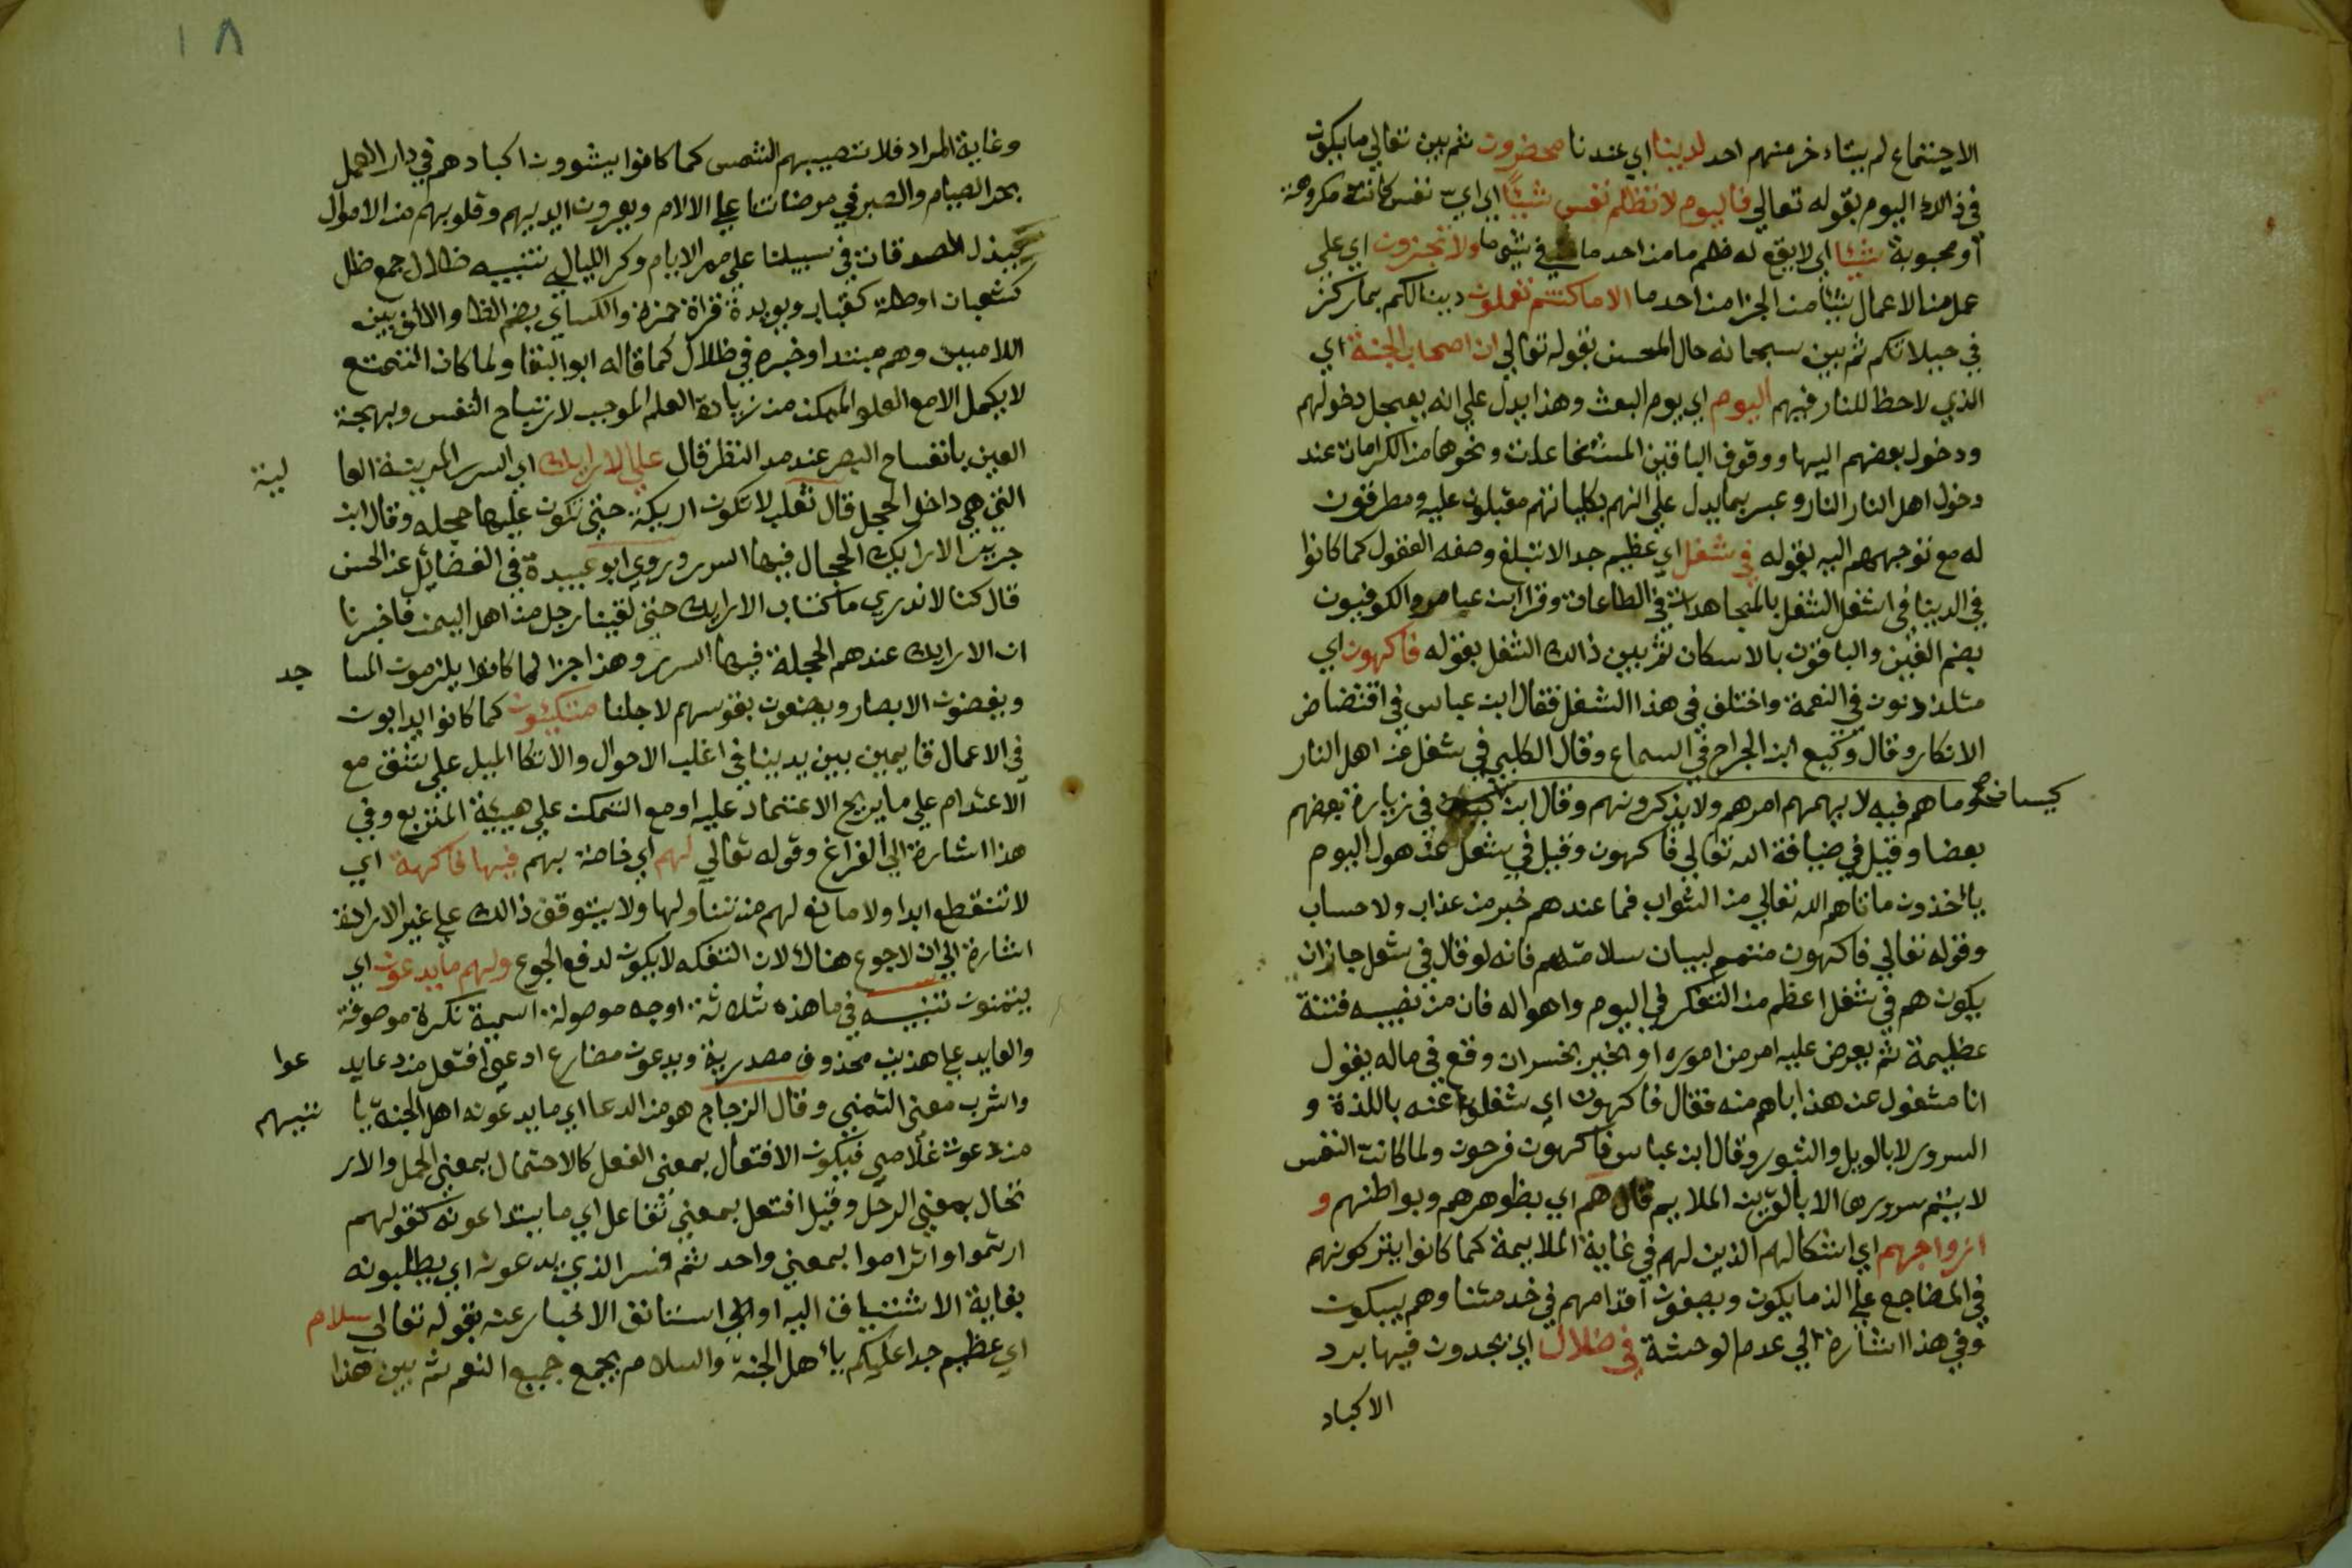 الاجتماع لم يتأخر منهم احد لدينا اي عندنا محضرون ثم بين تعالي مايكون
في ذالك اليوم بقوله تعالي فاليوم لا تظلم نفس شيئا اي اي نفس كانت مكروهة
او محبوبة شيئا اي لا يقع له ظلم ما من احد ما في شي ما ولا تجزون اي علي
عمل من الاعمال شيئا من الجزا من احد ما الا ما كنتم تعملون دينالكم بما ركز
في جبلاتكم ثم بين سبحانه حال المحسن بقوله تعالي ان اصحاب الجنة اي
الذي لاحظ للنار فيهم اليوم اي يوم البعث وهذا يدل علي انه يعجل دخولهم
ودخول بعضهم اليها ووقوف الباقين للشفاعات ونحوها من الكرامات عند
دخول اهل النار النار وعبر بما يدل علي انهم بكلياتهم مقبلون عليه ومطرقون
له مع توجههم اليه بقوله في شغل اي عظيم جدا لا تبلغ وصفه العقول كما كانوا
في الدينا في اشغل الشغل بالمجاهدات في الطاعات وقرا ابن عامر والكوفيون
بضم الغين والباقون بالاسكان ثم بين ذالك الشغل بقوله فاكهون اي
متلذذون في النعمة واختلف في هذا الشغل فقال ابن عباس في اقتضاض
الابكار وقال وكيع ابن الجراح في السماع وقال الكلبي في شغل عن اهل النار
وما هم فيه لا يهمهم امرهم ولا يذكرونهم وقال ابن كيسان في زيارة بعضهم
بعضا وقيل في ضيافة الله تعالي فاكهون وقيل في شغل عن هول اليوم
يااخذون ما اتاهم الله تعالي من الثواب فما عندهم خبر من عذاب ولا حساب
وقوله تعالي فاكهون متمم لبيان سلامتهم فانه لو قال في شغل جاز ان
يكون هم في شغل اعظم من التفكر في اليوم واهواله فان من نصيبه فتنة
عظيمة ثم يعرض عليه امر من اموره او يخبر بخسران وقع في ماله يقول
انا مشغول عن هذا باهم منه فقال فاكهون اي شغلوا عنه باللذة و
السرور لا بالويل والثبور وقال ابن عباس فاكهون فرحون ولما كانت النفس
لا يتم سرورها الا بالقرين الملايم قال هم اي بظوهرهم وبواطنهم و
ازواجهم اي اشكالهم الذين لهم في غاية الملايمة كما كانوا يتركونهم
في المضاجع علي الذ ما يكون ويصفون اقدامهم في خدمتنا وهم يبكون
وفي هذا اشارة الي عدم الوحشة في ظلال اي يجدون فيها برد
الاكباد
١٨
وغاية المراد فلا تصيبهم الشمس كما كانوا يشوون اكبادهم في دار العمل
بحر الصيام والصبر في مرضاتنا علي الالام ويبرون ايديهم وقلوبهم من الاموال
ببذل الصدقات في سبيلنا علي مر الايام وكر الليالي تنبيه ظلال جمع ظل
كشعبان اوظلة كقباب ويويده قراة حمزة والكساي بضم الظا ولا الف بين
اللامين وهم مبتدا وخبره في ظلال كما قاله ابو البقا ولما كان التمتع
لا يكمل الا مع العلو الممكن من زيادة العلم الموجب لارتياح النفس وبهجة
العين بانفساح البصر عند مد النظر قال علي الارايك اي السرر المزينة العا لية
التي هي داخل الحجل قال ثعلب لا تكون اريكة حتي تكون عليها حجله وقال ابن
جرير الارايك الحجال فيها السرر وروي ابو عبيدة في الفضايل عن الحسن
قال كنا لا ندري ما الارايك حتي لقينا رجل من اهل اليمن فاخبرنا
ان الاريكة عندهم الحجلة فيها السرر وهذا جزا لما كانوا يلزمون المسا جد
ويغضون الابصار ويضعون نفوسهم لاجلنا متكيئون كما كانوا يدابون
في الاعمال قايمين بين يدينا في اغلب الاحوال والاتكا الميل علي شق مع
الاعتماد علي ما يريح الاعتماد عليه او مع التمكن علي هيئة المتربع وفي
هذا اشارة الي الفراغ وقوله تعالي لهم اي خاصة بهم فيها فاكهة اي
لا تنقطع ابدا ولا مانع لهم من تناولها ولا يتوقف ذالك علي غير الارادة
اشارة الي ان لا جوع هناك لان التفكه لا يكون لدفع الجوع ولهم ما يدعون اي
يتمنون تنبيه في ما هذه ثلاثة اوجه موصولة اسمية نكرة موصوفة
والعايد علي هذين محذوف مصدرية ويدعون مضارع ادعي افتعل من دعا يد عوا
واشرب معني التمني وقال الزجاج هو من الدعا اي ما يدعونه اهل الجنة يا تيهم
من دعوت غلامي فيكون الافتعال بمعني الفعل كالاحتمال بمعني الحمل والار
تحال بمعني الرحل وقيل افتعل بمعني تفاعل اي ما يتداعونه كقولهم
ارتموا وتراموا بمعني واحد ثم فسر الذي يدعون اي يطلبونه
بغاية الاشتياق اليه او الي استانف الاخبار عنه بقوله تعالي سلام
اي عظيم جدا عليكم يا اهل الجنة والسلام يجمع جميع النعم ثم بين هذا